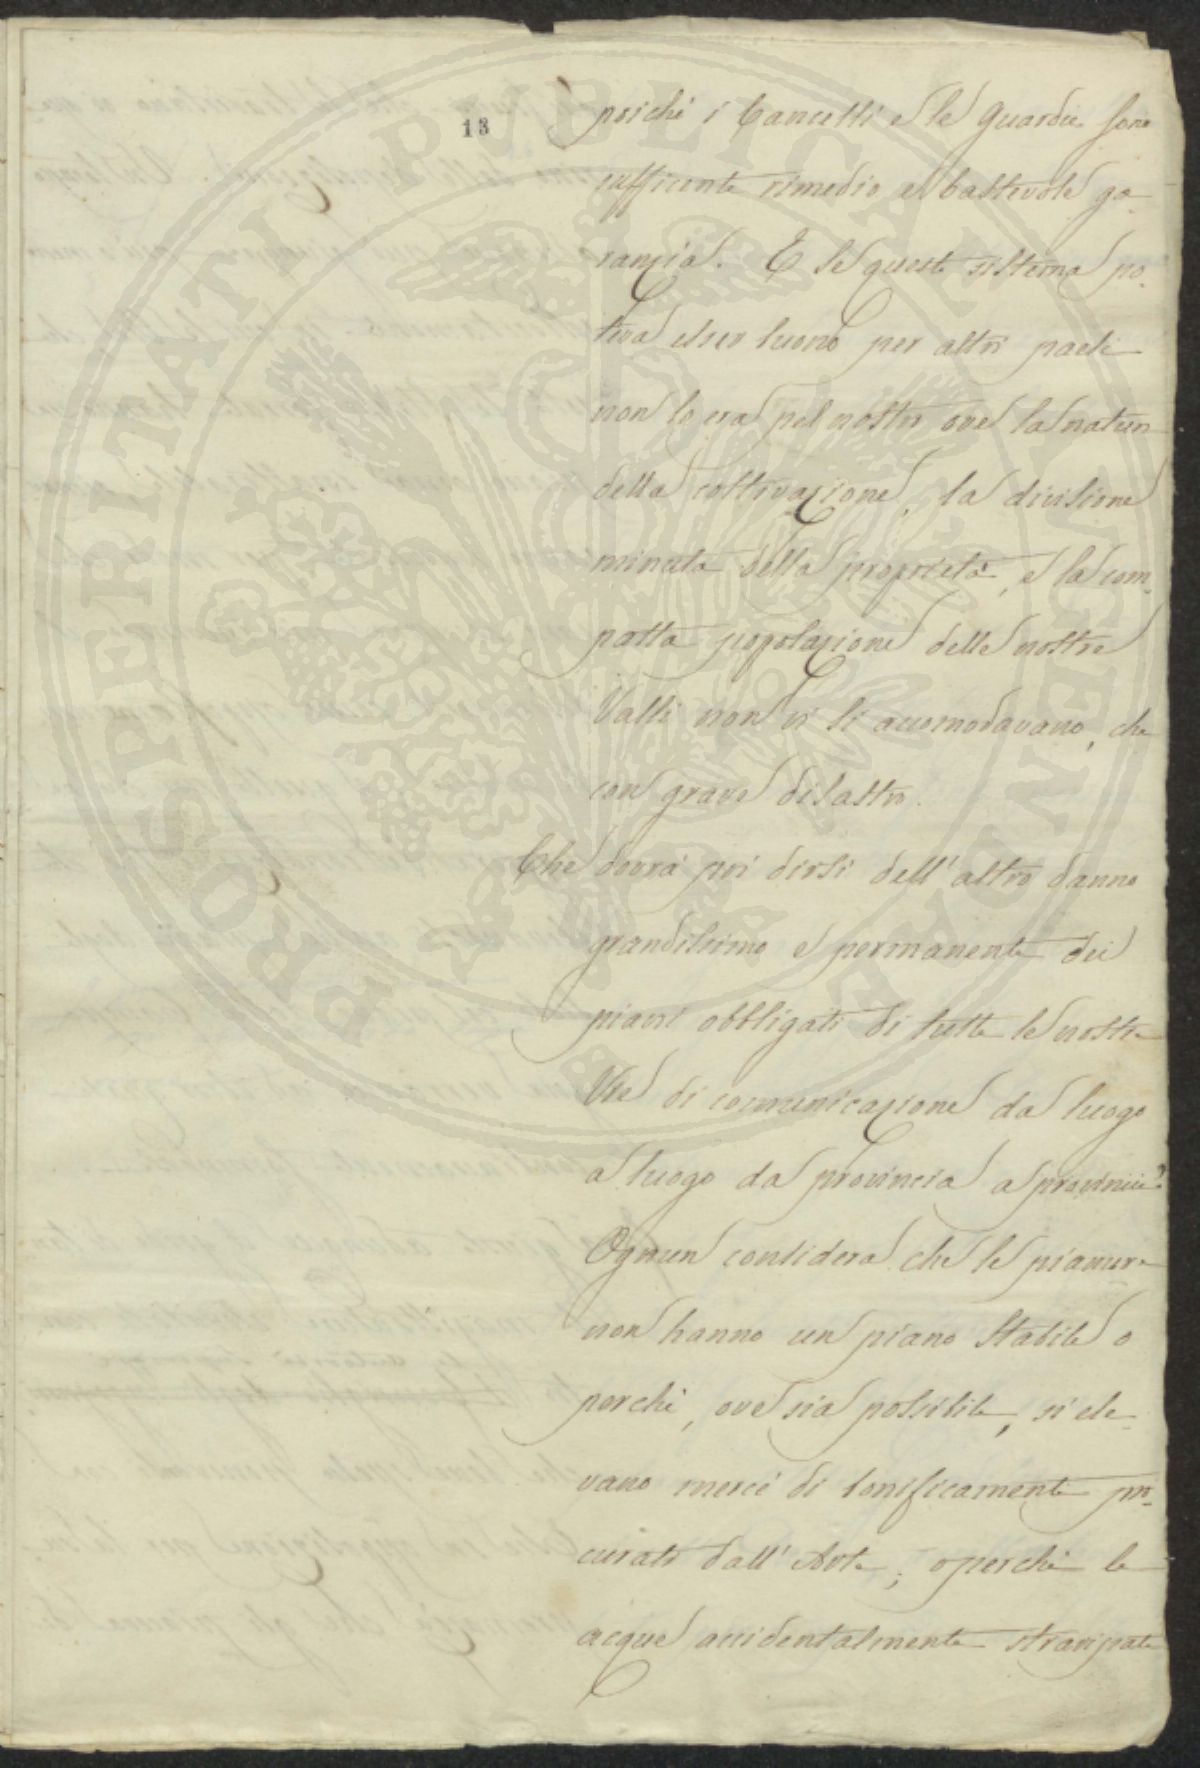 13
poichè i Cancelli e le Guardie sono
sufficente rimedio e bastevole ga-
ranzia. E se questo sistema po-
teva esser buono per altri paesi
non lo era pel nostro ove la natura
della coltivazione, la divisione
minuta della proprietà, e la com-
patta popolazione delle nostre
Valli non vi si accomodavano, che
con grave disastro.
Che dovrà poi dirsi dell'altro danno
grandissimo e permanente dei
piani obbligati di tutte le nostre
Vie di comunicazione da luogo
a luogo da provincia a provincia?
Ognun considera che le pianure
non hanno un piano stabile o
perchè, ove sia possibile, si ele-
vano mercè di bonificamenti pro-
curati dall'Arte; o perchè le
acque accidentalmente straripate
PROSPERITATI PVBLICAE AVGENDAE